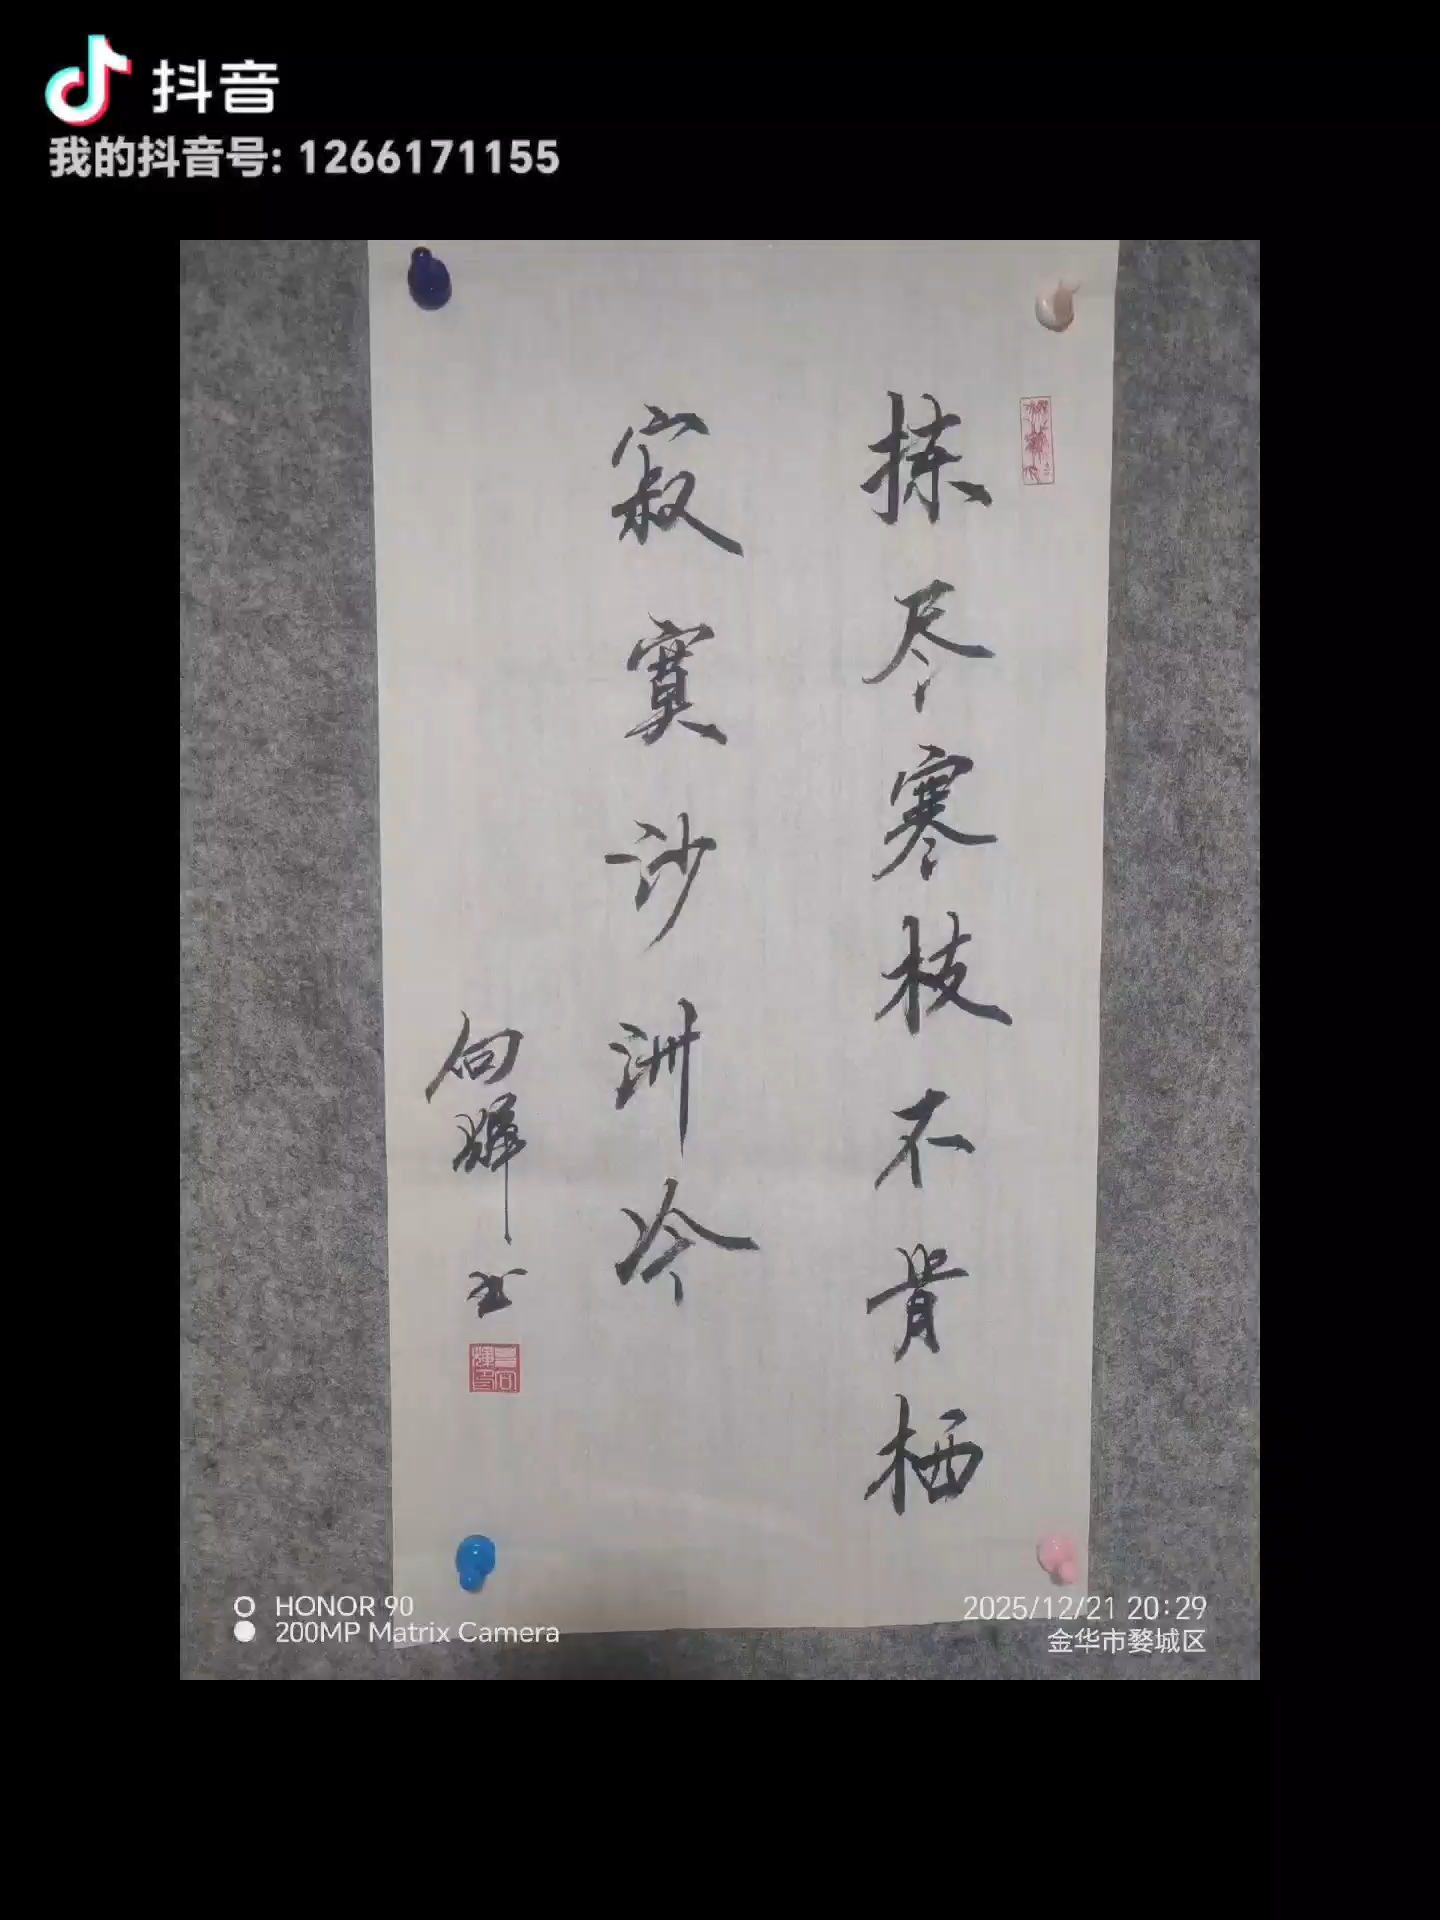 抖音
我的抖音号: 1266171155
拣尽寒枝不肯栖
寂寞沙洲冷
向辉书
HONOR 90
200MP Matrix Camera
2025/12/21 20:29
金华市婺城区